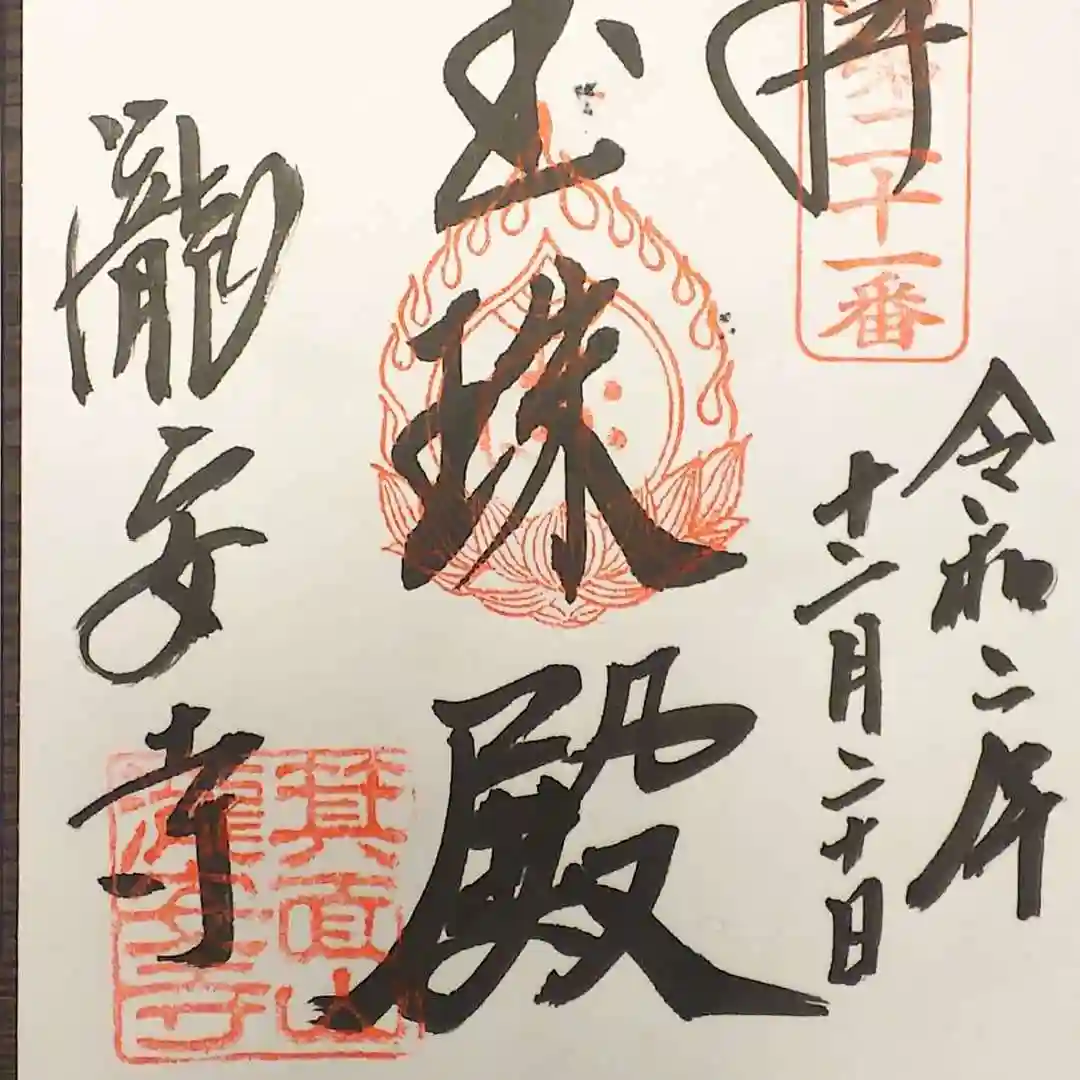 拝
二十一番
令和二年
十二月二十日
宝珠殿
瀧安寺
箕面山
瀧安寺